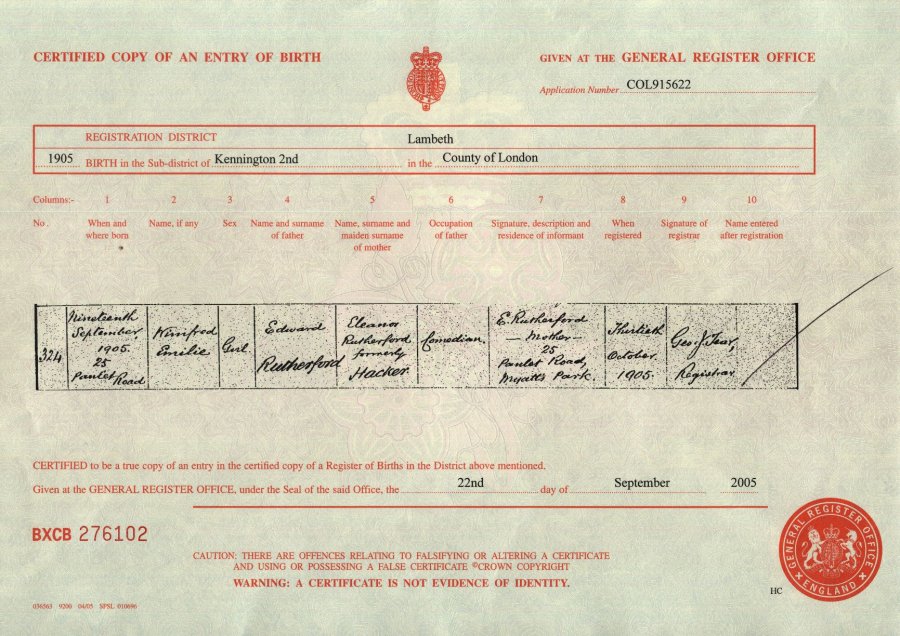 CERTIFIED COPY OF AN ENTRY OF BIRTH
GIVEN AT THE GENERAL REGISTER OFFICE
Application Number COL915622
REGISTRATION DISTRICT Lambeth
1905 BIRTH in the Sub-district of Kennington 2nd in the County of London
Columns:- 1 2 3 4 5 6 7 8 9 10
No. When and where born
Name, if any
Sex
Name and surname of father
Name, surname and maiden surname of mother
Occupation of father
Signature, description and residence of informant
When registered
Signature of registrar
Name entered after registration
324
Nineteenth
September,
1905.
25
Paulet Road
Winifred
Emilie
Girl
Edward
Rutherford
Eleanor
Rutherford
formerly
Hacker.
Comedian.
E. Rutherford
— Mother —
25
Paulet Road,
Myatts Park.
Thirtieth
October.
1905.
Geo. J. Tear,
Registrar
CERTIFIED to be a true copy of an entry in the certified copy of a Register of Births in the District above mentioned.
Given at the GENERAL REGISTER OFFICE, under the Seal of the said Office, the 22nd day of September 2005
BXCB 276102
CAUTION: THERE ARE OFFENCES RELATING TO FALSIFYING OR ALTERING A CERTIFICATE
AND USING OR POSSESSING A FALSE CERTIFICATE ©CROWN COPYRIGHT
WARNING: A CERTIFICATE IS NOT EVIDENCE OF IDENTITY.
GENERAL REGISTER OFFICE
ENGLAND
HC
036563 9200 04/05 SPSL 010696